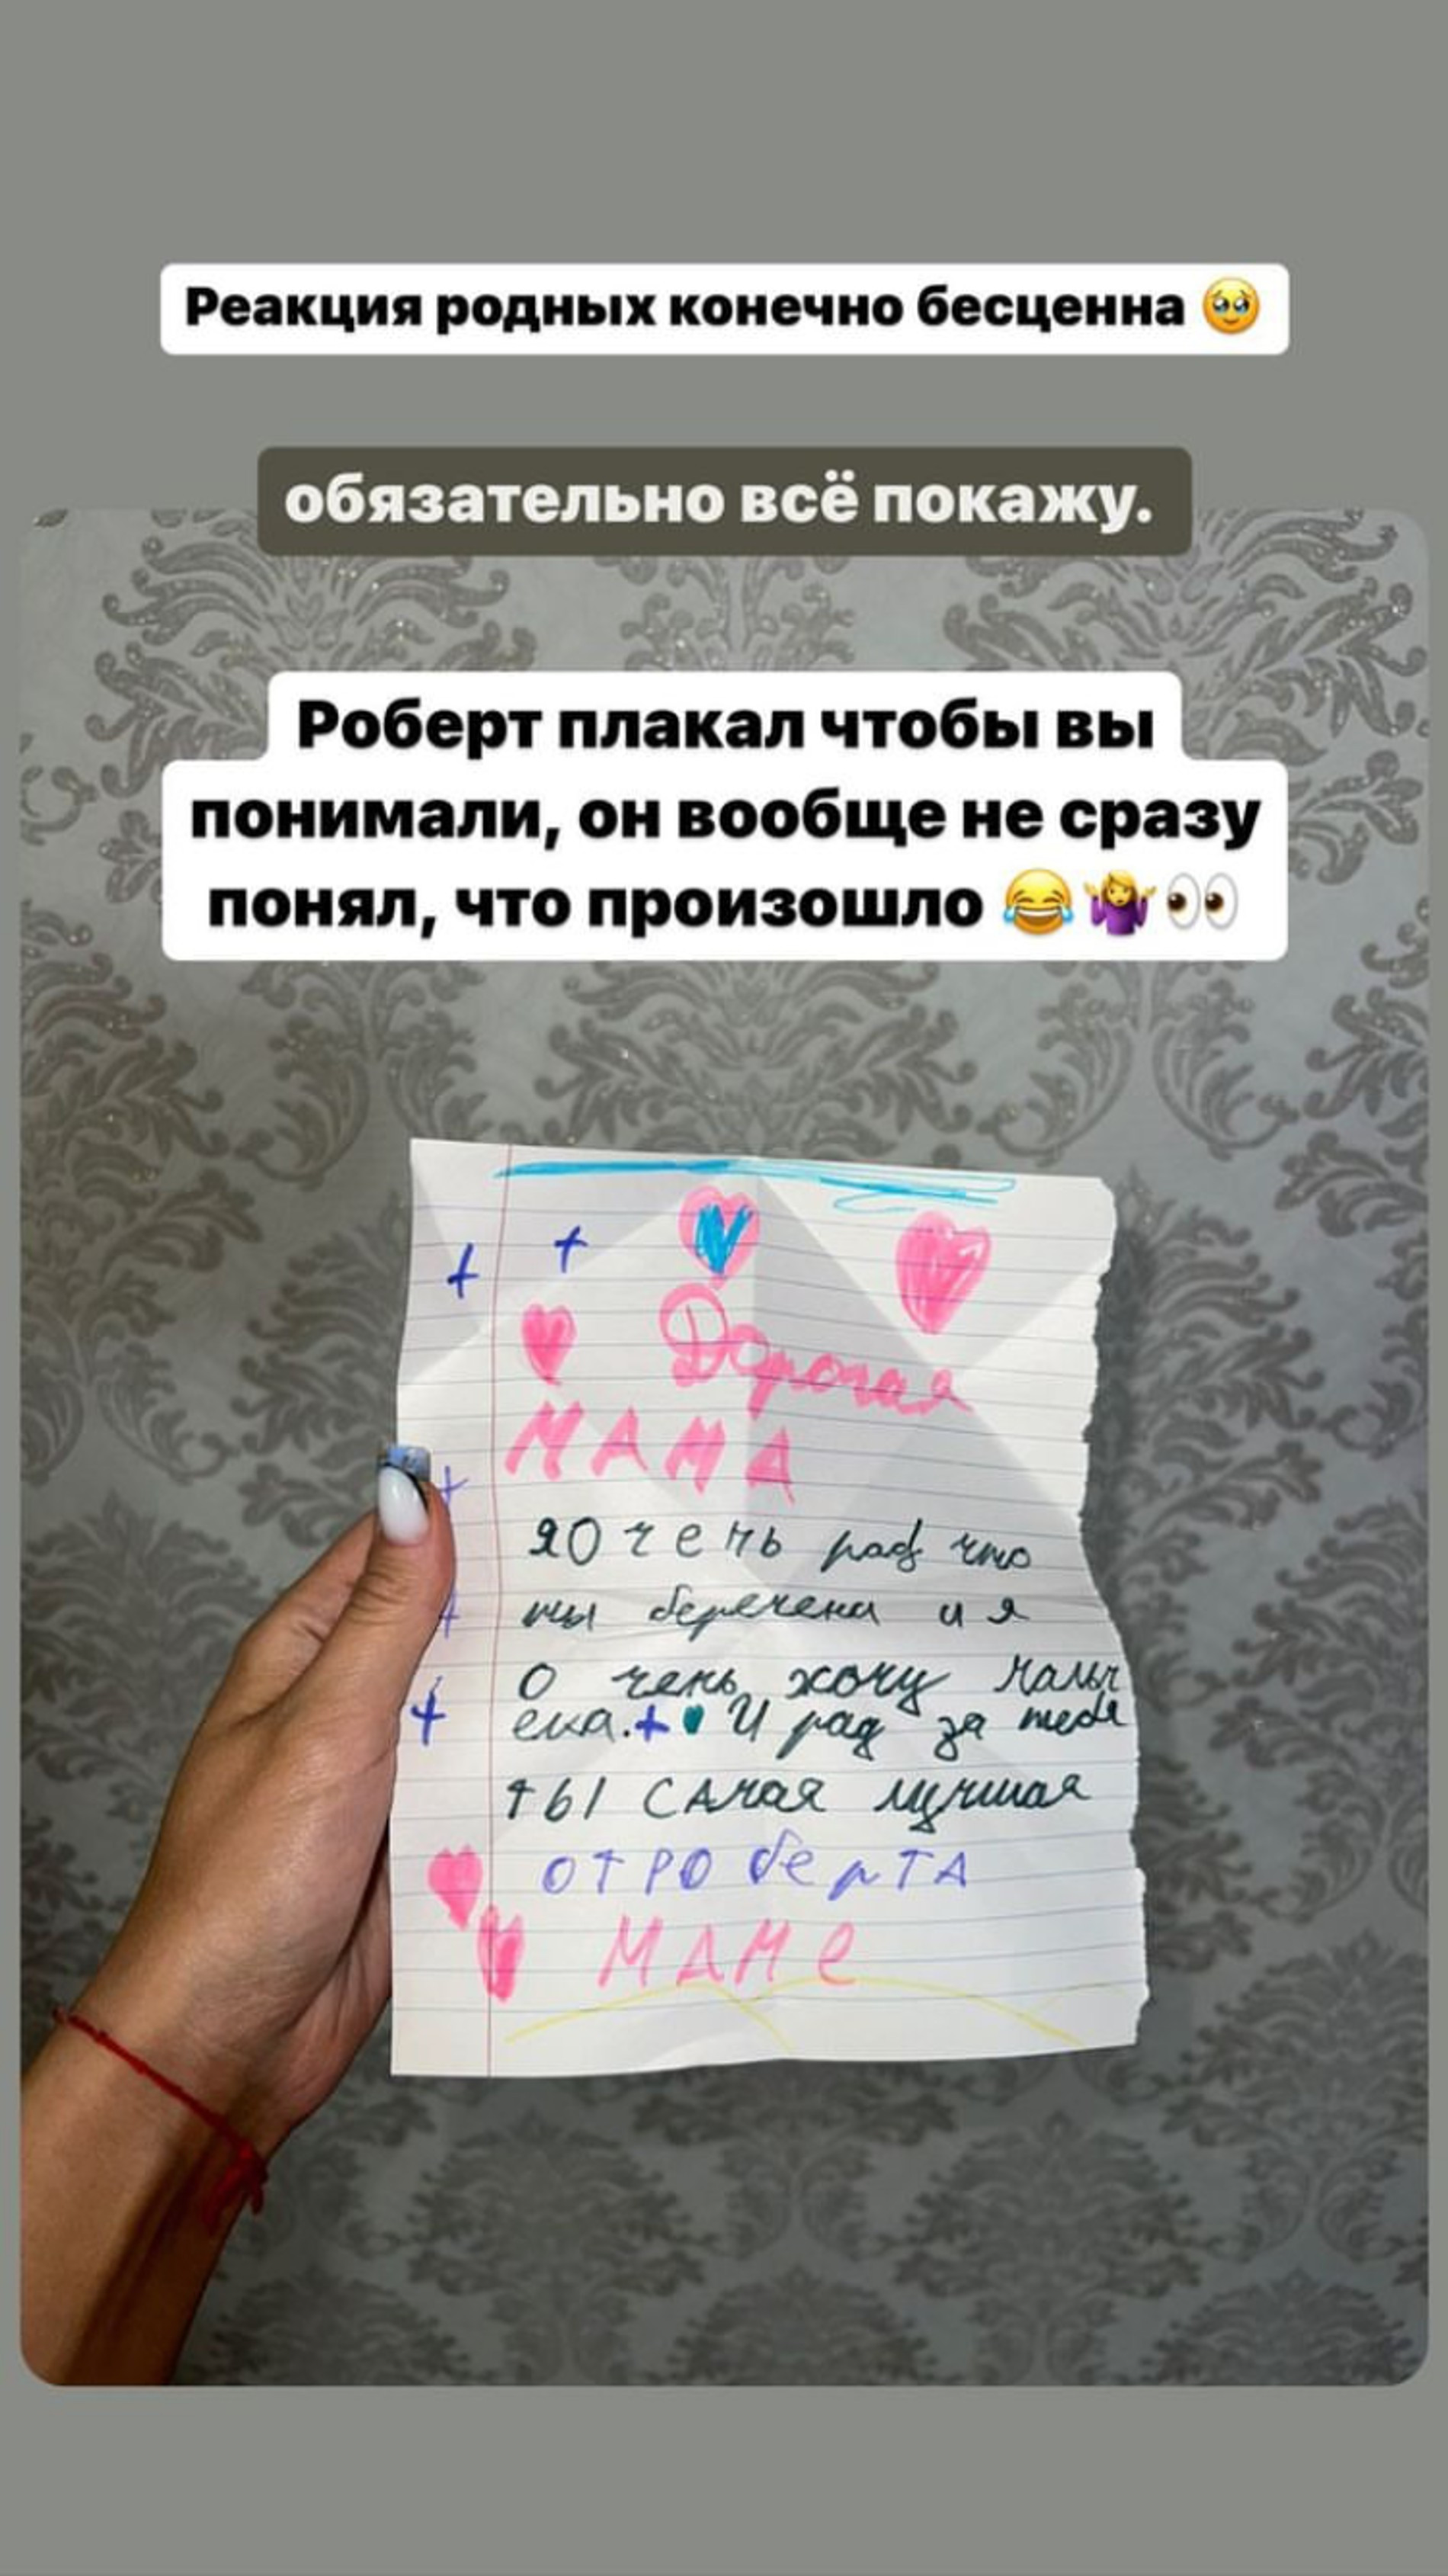 Реакция родных конечно бесценна 🥹
обязательно всё покажу.
Роберт плакал чтобы вы
понимали, он вообще не сразу
понял, что произошло 😂🤷‍♀️👀
Дорогая
МАМА
я О чень рад что
ты беремена и я
О чень хочу мальч
ека. И рад за тебя
ты самая лучшая
ОТ РОбертА
МАМе